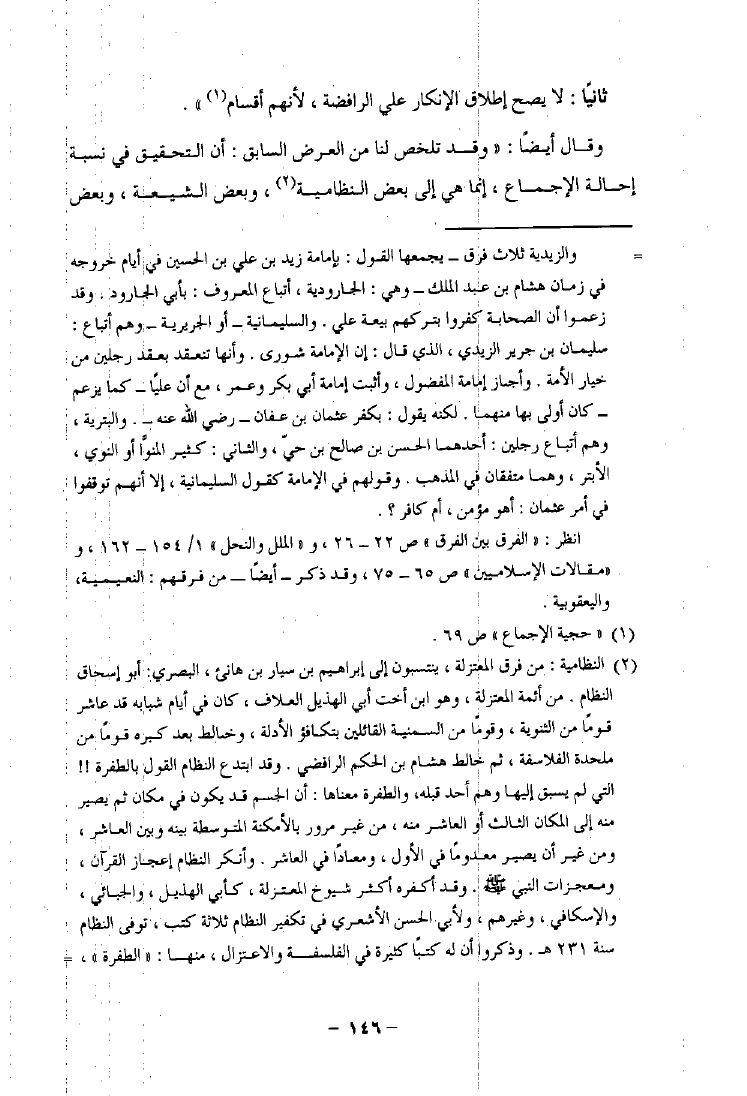 ثانيًا : لا يصح إطلاق الإنكار علي الرافضة ، لأنهم أقسام(١) » .
وقال أيضًا : « وقد تلخص لنا من العرض السابق : أن التحقيق في نسبة
إحالة الإجماع ، إنما هي إلى بعض النظامية(٢) ، وبعض الشيعة ، وبعض
= والزيدية ثلاث فرق ــ يجمعها القول : بإمامة زيد بن علي بن الحسين في أيام خروجه
في زمان هشام بن عبد الملك ــ وهي : الجارودية ، أتباع المعروف : بأبي الجارود . وقد
زعموا أن الصحابة كفروا بتركهم بيعة علي . والسليمانية ــ أو الجريرية ــ وهم أتباع :
سليمان بن جرير الزيدي ، الذي قال : إن الإمامة شورى . وأنها تنعقد بعقد رجلين من
خيار الأمة . وأجاز إمامة المفضول ، وأثبت إمامة أبي بكر وعمر ، مع أن عليًا ــ كما يزعم
ــ كان أولى بها منهما . لكنه يقول : بكفر عثمان بن عفان ــ رضي الله عنه ــ . والبترية ،
وهم أتباع رجلين : أحدهما الحسن بن صالح بن حيّ ، والثاني : كثير المنوّا أو النوي ،
الأبتر ، وهما متفقان في المذهب . وقولهم في الإمامة كقول السليمانية ، إلا أنهم توقفوا
في أمر عثمان : أهو مؤمن ، أم كافر ؟ .
انظر : « الفرق بين الفرق » ص ٢٢ ــ ٢٦ ، و « الملل والنحل » ١/ ١٥٤ ــ ١٦٢ ، و
«مقالات الإسلاميين » ص ٦٥ ــ ٧٥ ، وقد ذكر ــ أيضًا ــ من فرقهم : النعيمية،
واليعقوبية .
(١) « حجية الإجماع » ص ٦٩ .
(٢) النظامية : من فرق المعتزلة ، ينتسبون إلى إبراهيم بن سيار بن هانئ ، البصري: أبو إسحاق
النظام . من أئمة المعتزلة ، وهو ابن أخت أبي الهذيل العلاف ، كان في أيام شبابه قد عاشر
قومًا من الثنوية ، وقومًا من السمنية القائلين بتكافؤ الأدلة ، وخالط بعد كبره قومًا من
ملحدة الفلاسفة ، ثم خالط هشام بن الحكم الرافضي . وقد ابتدع النظام القول بالطفرة !!
التي لم يسبق إليها وهم أحد قبله، والطفرة معناها : أن الجسم قد يكون في مكان ثم يصير
منه إلى المكان الثالث أو العاشر منه ، من غير مرور بالأمكنة المتوسطة بينه وبين العاشر ،
ومن غير أن يصير معدومًا في الأول ، ومعادًا في العاشر . وأنكر النظام إعجاز القرآن ،
ومعجزات النبي ﷺ . وقد أكفره أكثر شيوخ المعتزلة ، كأبي الهذيل ، والجبائي ،
والإسكافي ، وغيرهم ، ولأبي الحسن الأشعري في تكفير النظام ثلاثة كتب ، توفى النظام
سنة ٢٣١ هـ . وذكروا أن له كتبًا كثيرة في الفلسفة والاعتزال ، منها : « الطفرة » ، =
– ١٤٦ –